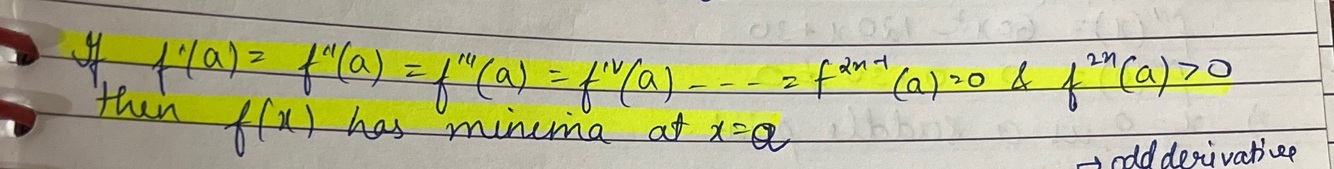 If f'(a) = f''(a) = f'''(a) = f'ⱽ(a) ---- = f²ⁿ⁻¹(a)=0 & f²ⁿ(a)>0
then f(x) has minima at x=a
→ odd derivative